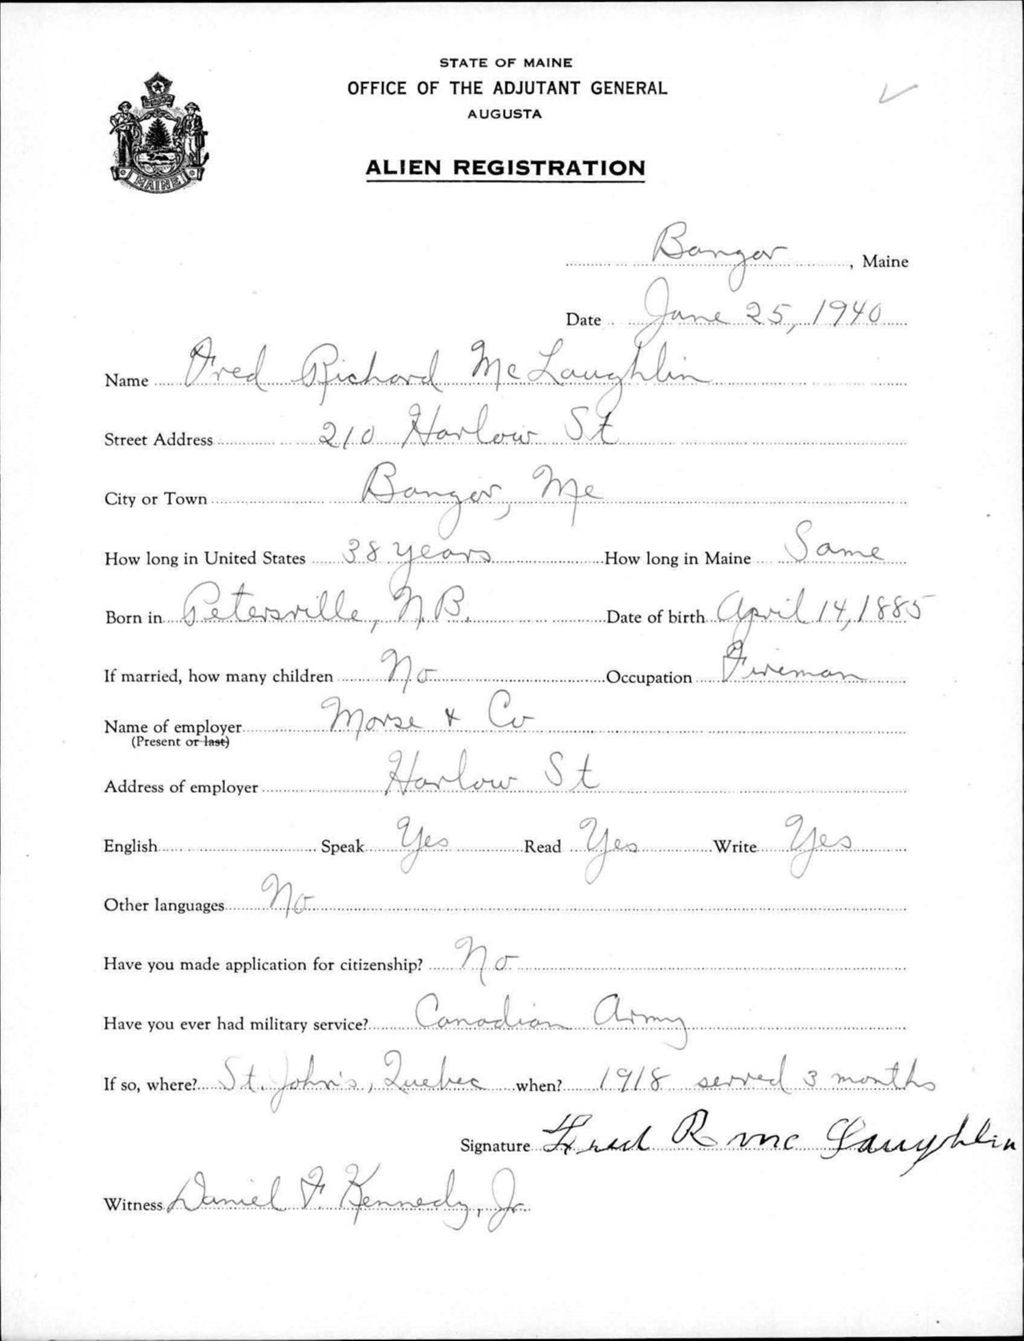 STATE OF MAINE
OFFICE OF THE ADJUTANT GENERAL
AUGUSTA
ALIEN REGISTRATION
MAINE
Bangor, Maine
Date June 25, 1940
Name Fred Richard McLaughlin
Street Address 210 Harlow St
City or Town Bangor, Me
How long in United States 38 years How long in Maine Same
Born in Petersville, N.B. Date of birth April 14, 1885
If married, how many children No Occupation Fireman
Name of employer Morse & Co
(Present or last)
Address of employer Harlow St
English Speak Yes Read Yes Write Yes
Other languages No
Have you made application for citizenship? No
Have you ever had military service? Canadian Army
If so, where? St. John's, Quebec when? 1918 served 3 months
Signature Fred R McLaughlin
Witness Daniel F. Kennedy, Jr.